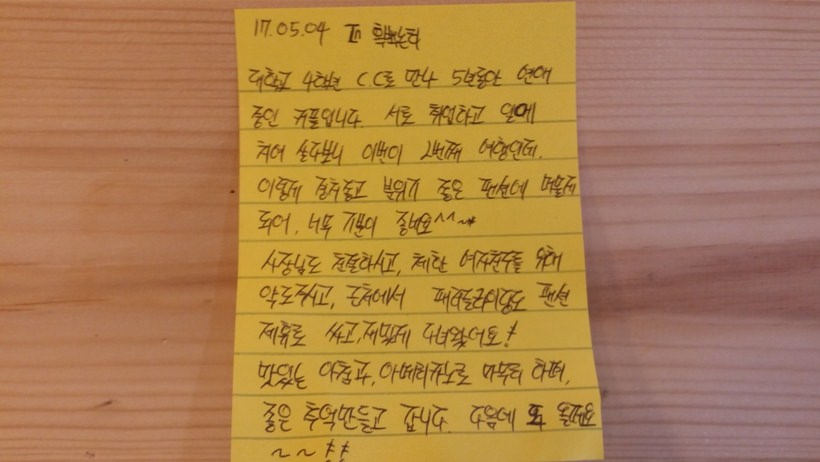 17.05.04 In 학화논화
대학교 4학년 C.C로 만나 5년동안 연애
중인 커플입니다. 서로 취업하고 일에
치여 살다보니 이번이 2번째 여행인데,
이렇게 경치좋고 분위기 좋은 팬션에 머물게
되어, 너무 기분이 좋네요^^~*
사장님도 친절하시고, 체한 여자친구를 위해
약도주시고, 근처에서 패러글라이딩도 팬션
제휴로 싸고, 재밌게 다녀왔어요!
맛있는 아침과, 아메리카노로 마무리 하며,
좋은 추억만들고 갑니다. 다음에 또 올께요
~~!!